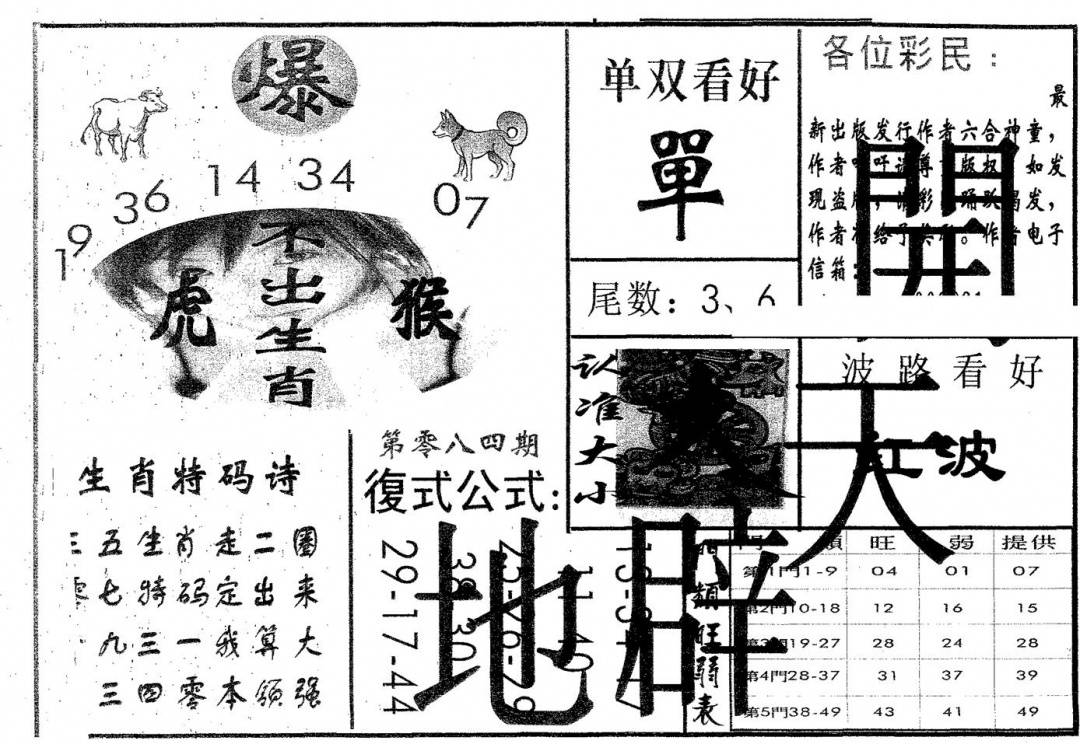 爆
19 36 14 34 07
不出生肖
虎 猴
单双看好
單
尾数：3、6
各位彩民：
最
新出版发行作者六合神童，
作者
版权
如发
现盗版，
发，
作者
给予
。作者电子
信箱：
開
认准大小
波路看好
红波
天
地
生肖特码诗
三五生肖走二圈
零七特码定出来
九三一我算大
三四零本领强
第零八四期
復式公式：
29-17-44
類旺弱表
門類 旺 弱 提供
第1門1-9 04 01 07
第2門10-18 12 16 15
第3門19-27 28 24 28
第4門28-37 31 37 39
第5門38-49 43 41 49